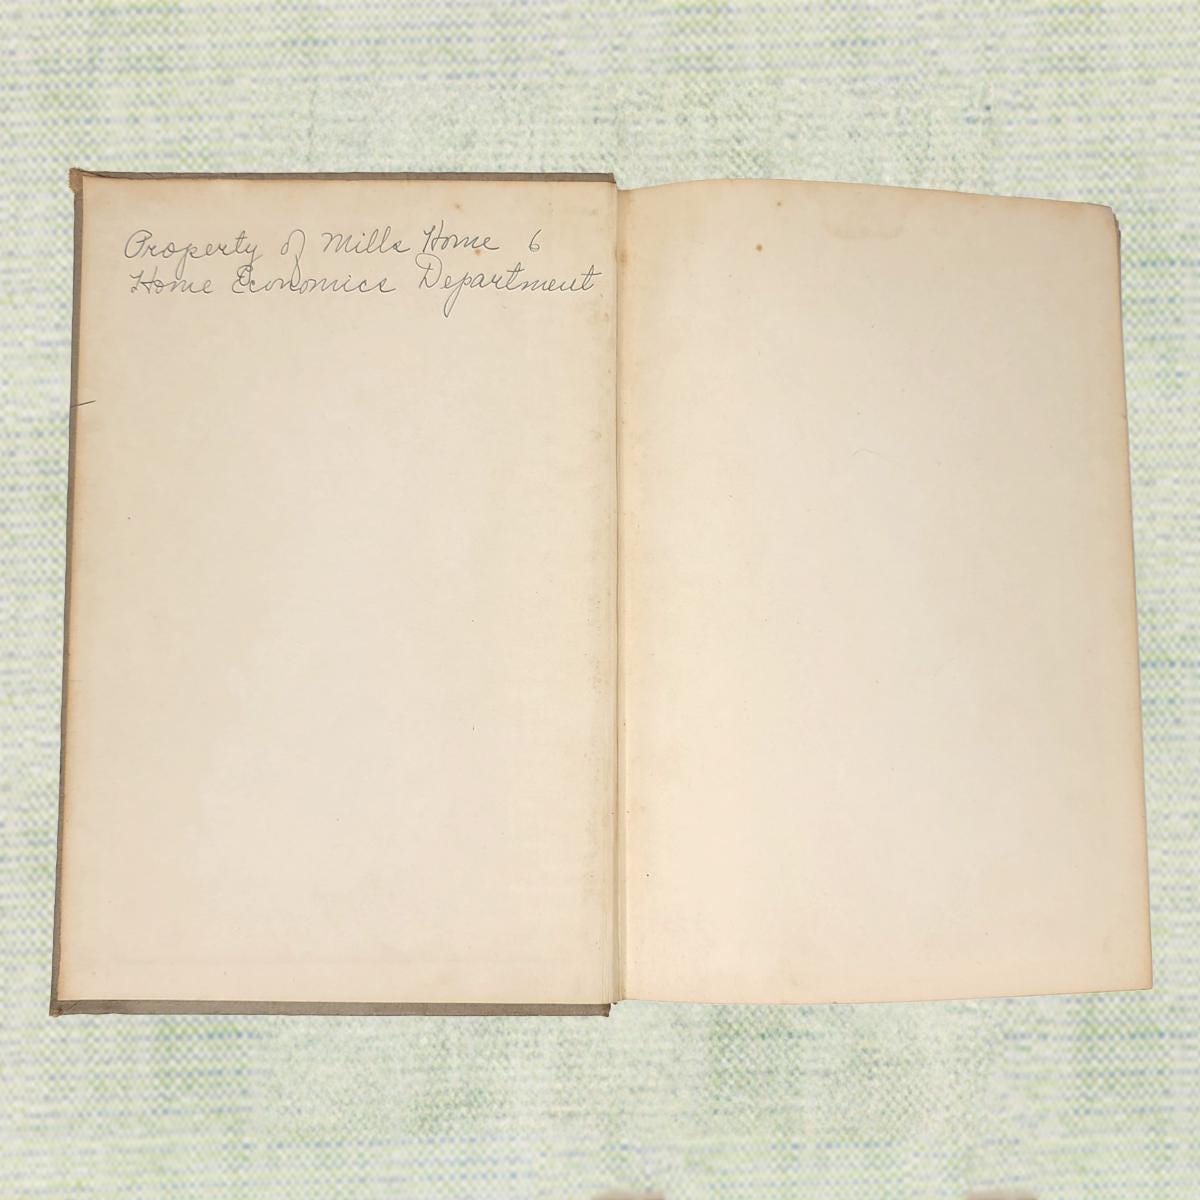 Property of Mills Home 6
Home Economics Department